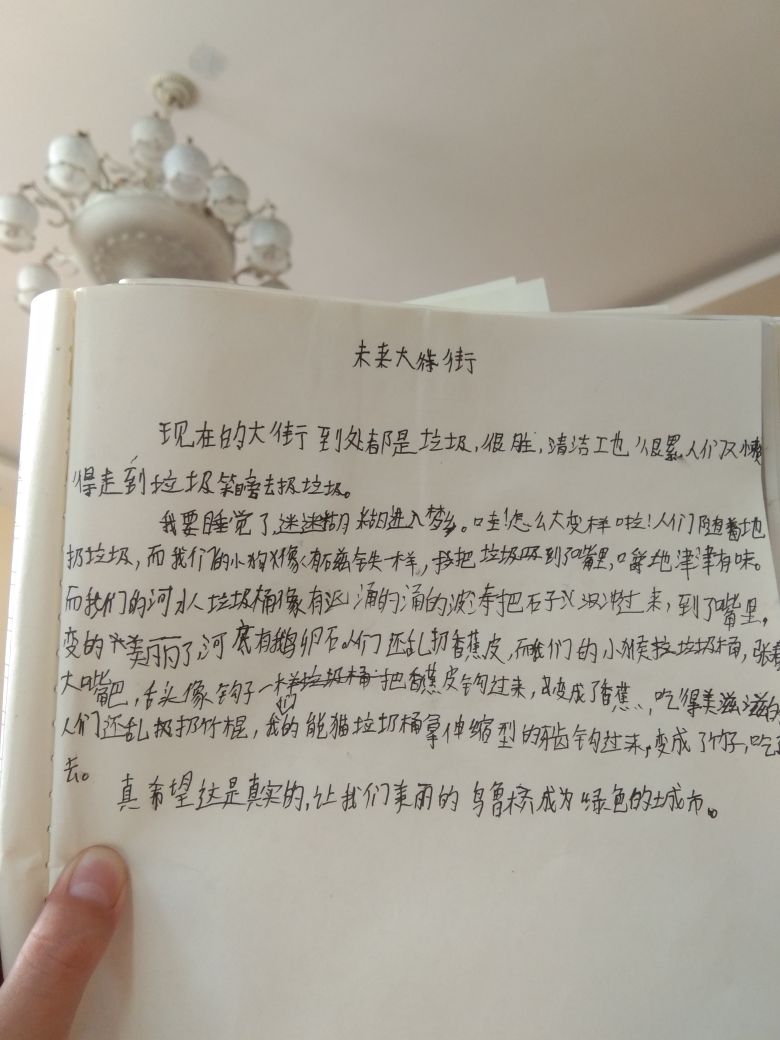 未来大街
现在的大街到处都是垃圾,很脏,清洁工也很累,人们又懒
得走到垃圾旁去扔垃圾。
我要睡觉了,迷迷糊糊进入梦乡。哇!怎么大变样啦!人们随着地
扔垃圾,而我们的小狗像有磁铁一样,把垃圾吸到了嘴里,嚼地津津有味。
而我们的河人垃圾桶像有汹涌的波涛把石子过来,到了嘴里,
变的美丽了,河底有鹅卵石人们还乱扔香蕉皮,而我们的小猴垃圾桶,张着
大嘴巴,舌头像钩子一样把香蕉皮钩过来,变成了香蕉,吃得美滋滋的
人们还乱扔竹棍,我们的熊猫垃圾桶拿伸缩型的牙齿钩过来,变成了竹子,吃
去。
真希望这是真实的,让我们美丽的乌鲁木齐成为绿色的城市。